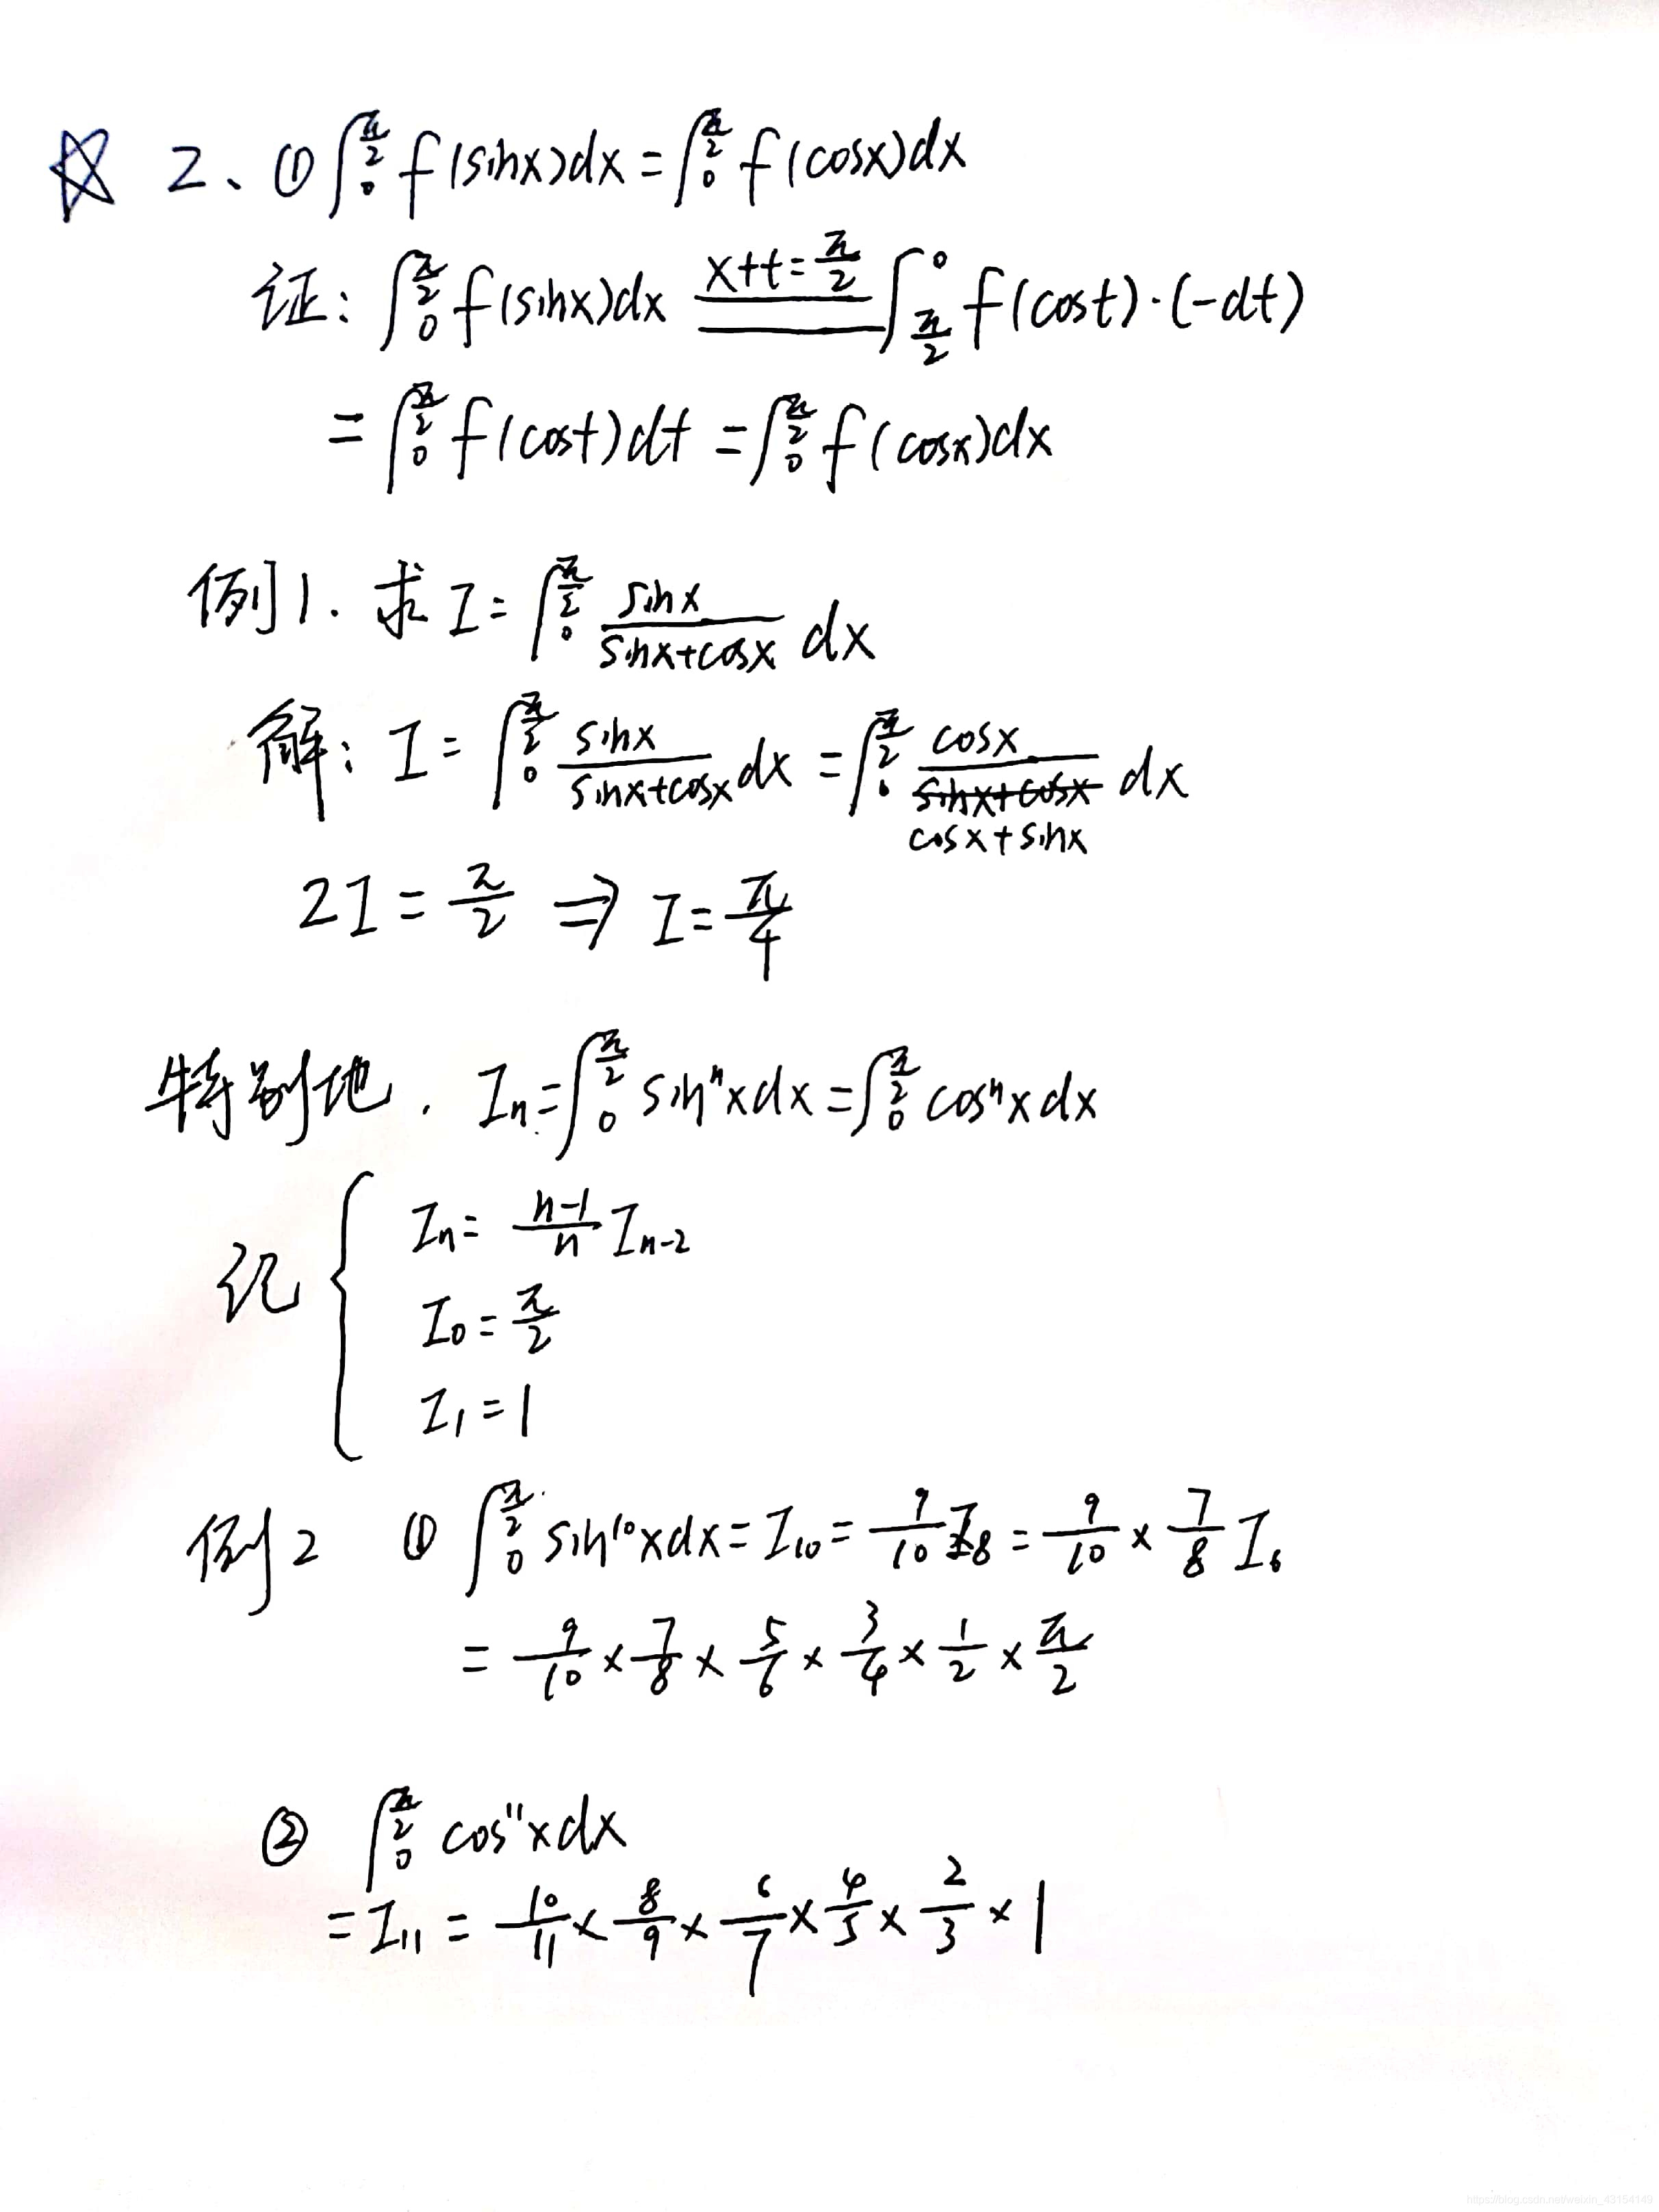 ☆ 2、① ∫₀^{π/2} f(sinx)dx = ∫₀^{π/2} f(cosx)dx
证: ∫₀^{π/2} f(sinx)dx \xlongequal{x+t=π/2} ∫_{π/2}^0 f(cost)·(-dt)
= ∫₀^{π/2} f(cost)dt = ∫₀^{π/2} f(cosx)dx
例1. 求 I = ∫₀^{π/2} \frac{sinx}{sinx+cosx} dx
解: I = ∫₀^{π/2} \frac{sinx}{sinx+cosx} dx = ∫₀^{π/2} \frac{cosx}{cosx+sinx} dx
2I = \frac{π}{2} ⇒ I = \frac{π}{4}
特别地. Iₙ = ∫₀^{π/2} sinⁿxdx = ∫₀^{π/2} cosⁿxdx
记 { Iₙ = \frac{n-1}{n} Iₙ₋₂
I₀ = \frac{π}{2}
I₁ = 1
例2 ① ∫₀^{π/2} sin¹⁰xdx = I₁₀ = \frac{9}{10} I₈ = \frac{9}{10} × \frac{7}{8} I₆
= \frac{9}{10} × \frac{7}{8} × \frac{5}{6} × \frac{3}{4} × \frac{1}{2} × \frac{π}{2}
② ∫₀^{π/2} cos¹¹xdx
= I₁₁ = \frac{10}{11} × \frac{8}{9} × \frac{6}{7} × \frac{4}{5} × \frac{2}{3} × 1
https://blog.csdn.net/weixin_43154149